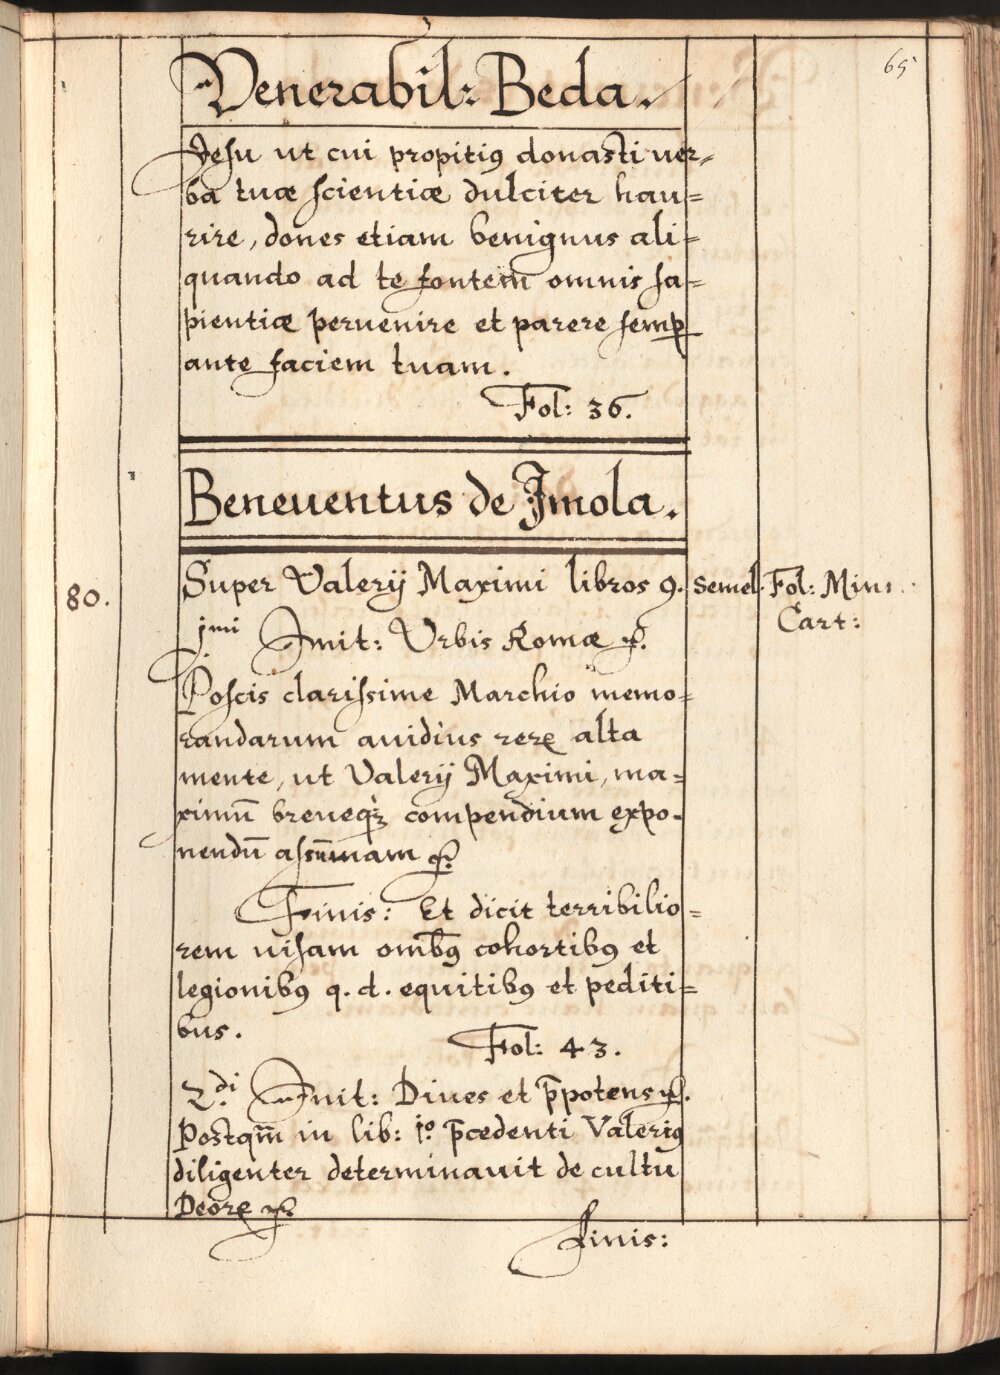 65
Venerabil: Beda.
Jesu ut cui propitiꝯ donasti uer-
ba tuæ scientiæ dulciter hau=
rire, dones etiam benignus ali=
quando ad te fontem omnis sa=
pientiæ peruenire et parere semꝑ
ante faciem tuam.
Fol: 36.
Beneuentus de Jmola.
80. Super Valerij Maximi libros 9. Semel. Fol: Min:
Cart:
jmi Jnit: Vrbis Romæ &.
Poscis clarissime Marchio memo=
randarum auidius rerꝝ alta
mente, ut Valerij Maximi, ma=
ximū breueqꝫ compendium expo-
nendū assūmam &.
Finis: Et dicit terribilio=
rem uisam omībꝯ cohortibꝯ et
legionibꝯ q. d. equitibꝯ et pediti=
bus.
Fol: 43.
2.di Jnit: Diues et p̄potens &.
Postqm̄ in lib: jo. p̄cedenti Valeriꝯ
diligenter determinauit de cultu
Deorꝝ &.
finis: